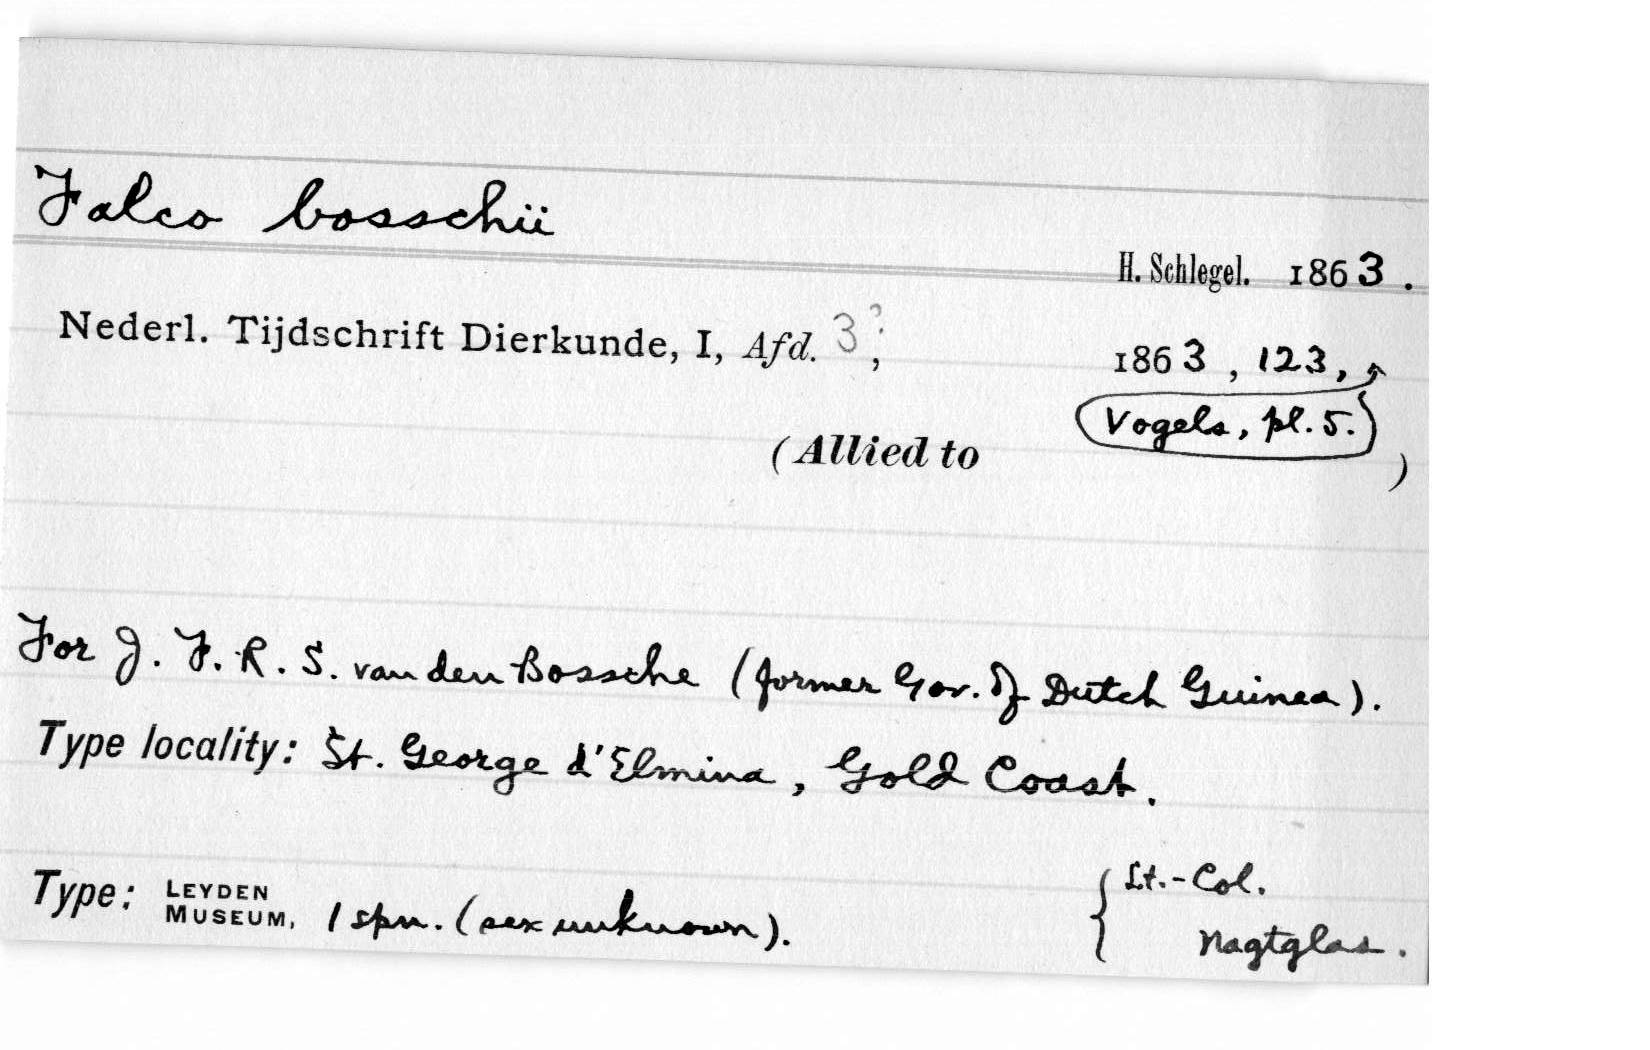 Falco bosschii
H. Schlegel. 1863.
Nederl. Tijdschrift Dierkunde, I, Afd. 3?, 1863, 123,
Vogels, pl. 5.
(Allied to )
For J. F. R. S. van den Bossche (former Gov. of Dutch Guinea).
Type locality: St. George d'Elmina, Gold Coast.
Type: LEYDEN MUSEUM, 1 spn. (sex unknown). { Lt.-Col.
Nagtglas.